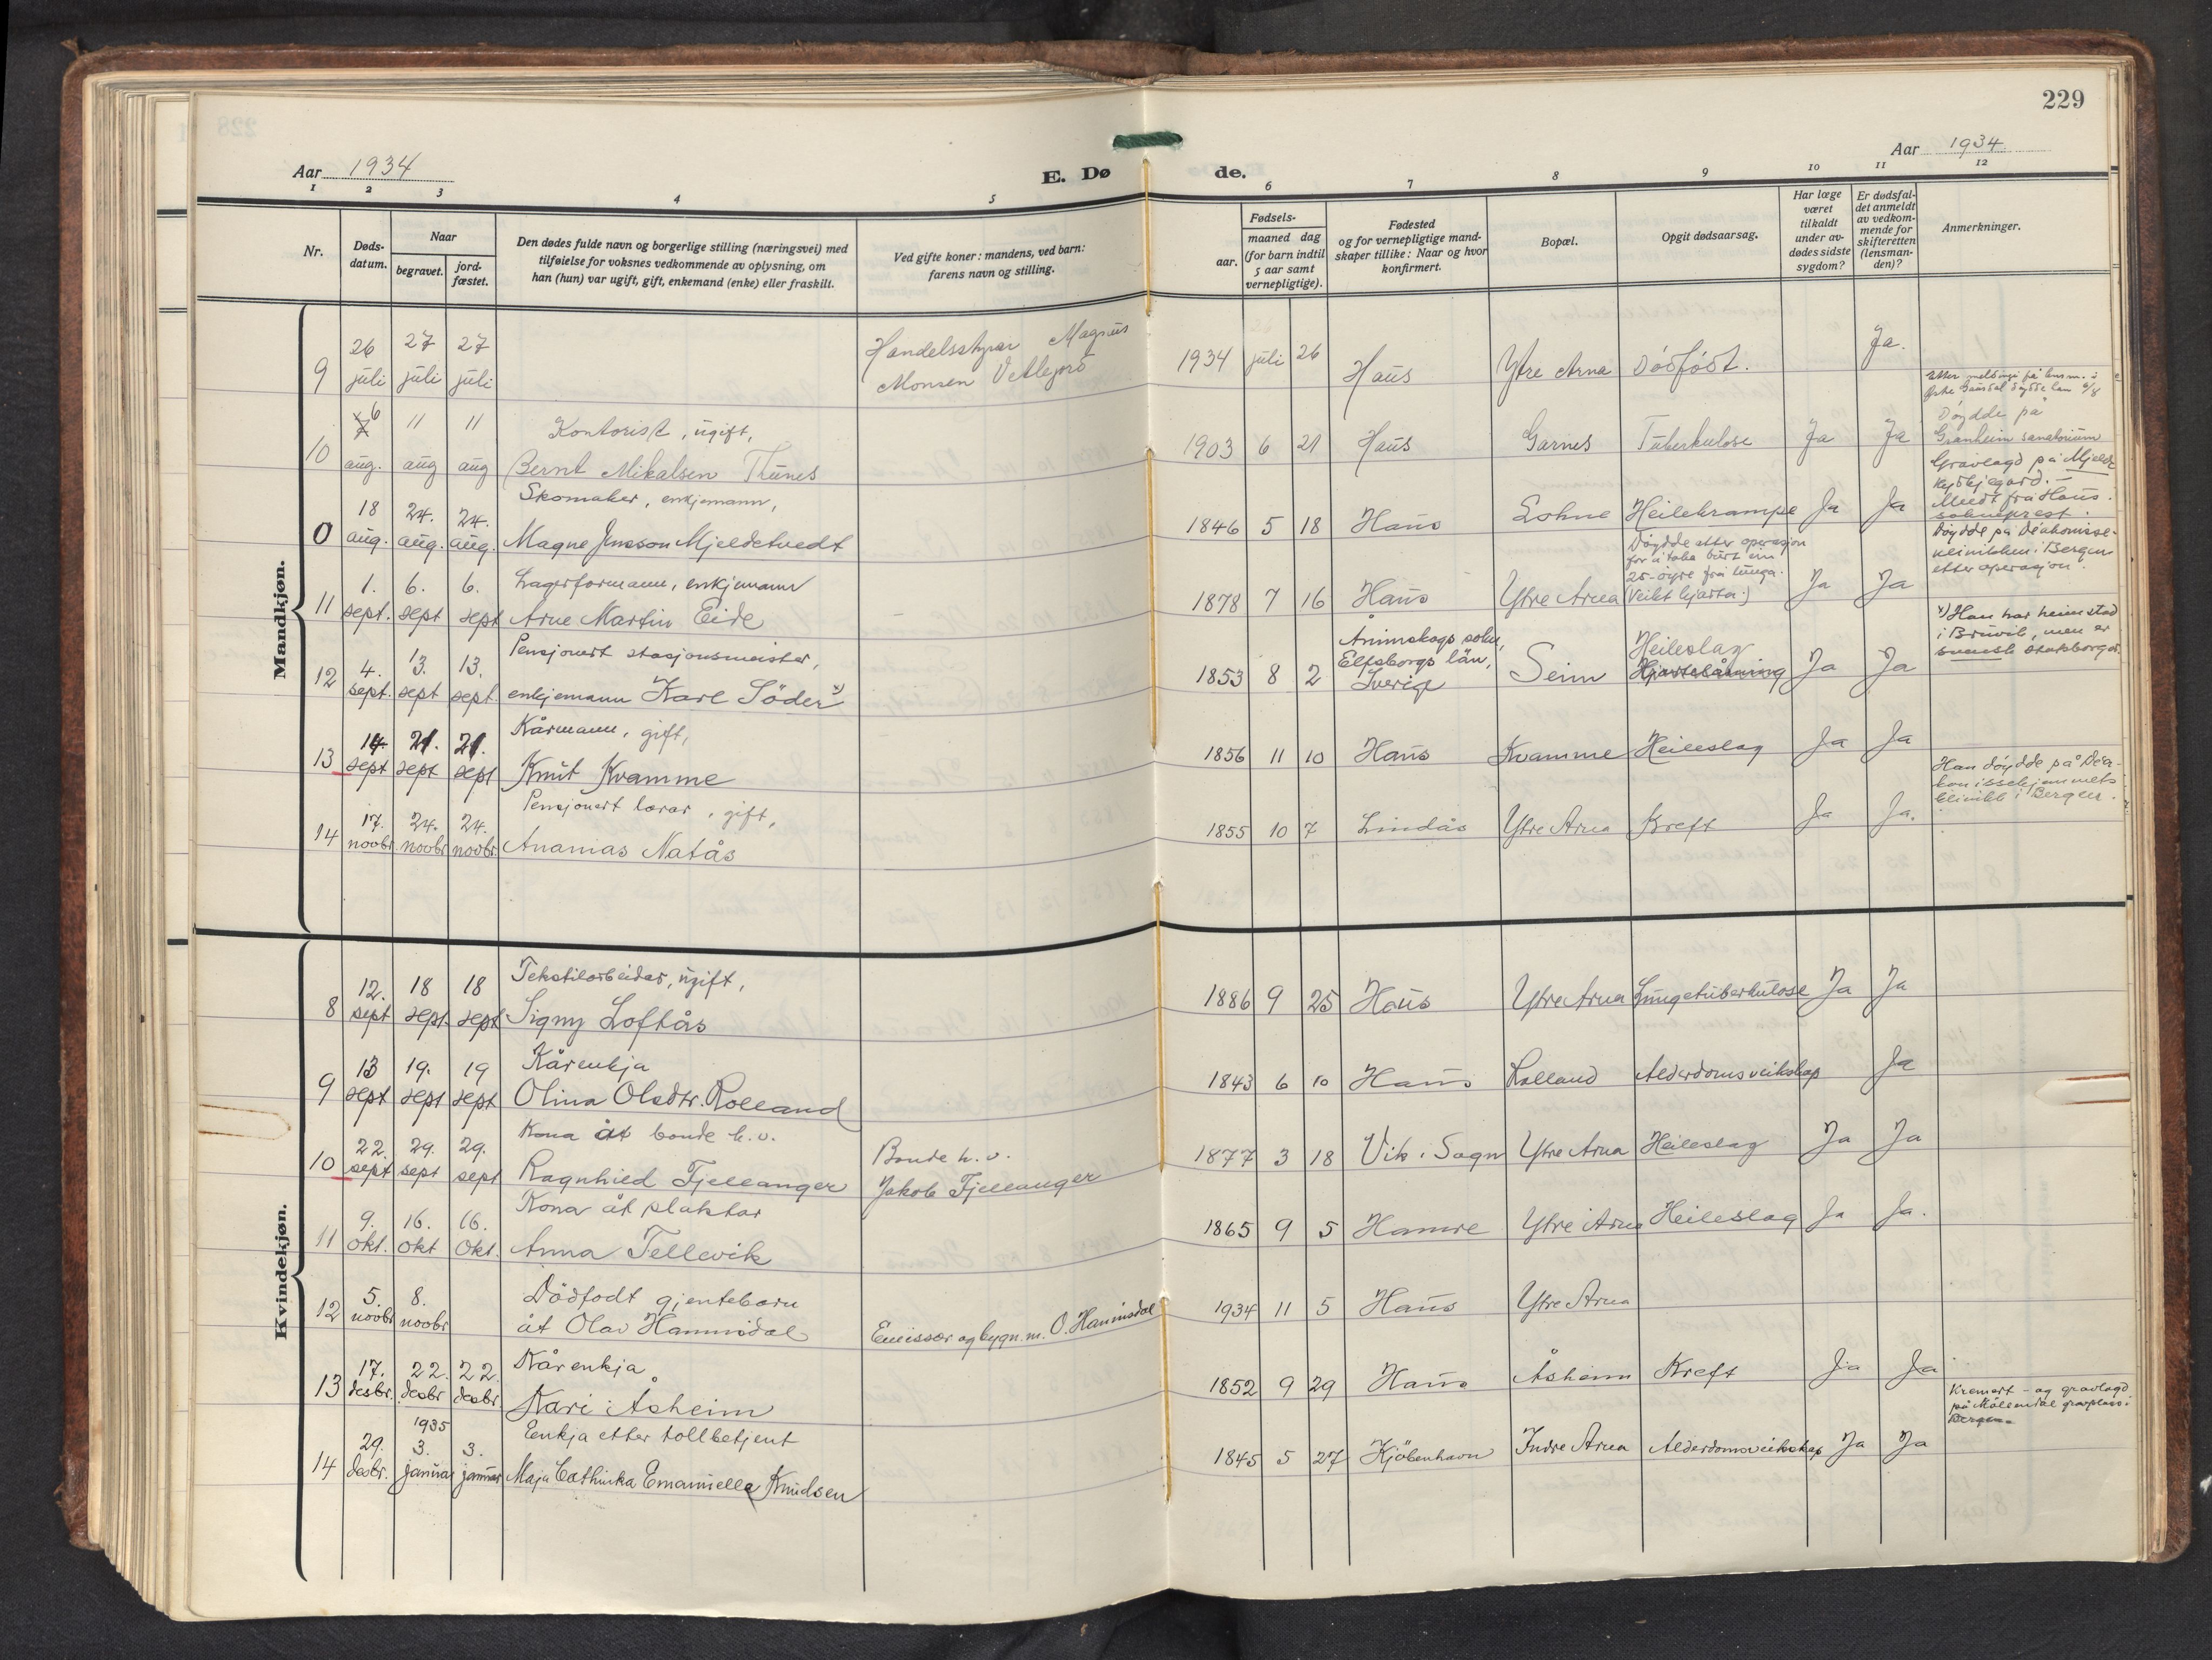 229
Aar 1934
Aar 1934
E. Dø
de.
1 2 3 4 5 6 7 8 9 10 11 12
Nr.
Døds-
datum.
Naar
begravet.
jord-
fæstet.
Den dødes fulde navn og borgerlige stilling (næringsvei) med
tilføielse for voksnes vedkommende av oplysning, om
han (hun) var ugift, gift, enkemand (enke) eller fraskilt.
Ved gifte koner: mandens, ved barn:
farens navn og stilling.
Fødsels-
aar.
maaned dag
(for barn indtil
5 aar samt
vernepligtige).
Fødested
og for vernepligtige mand-
skaper tillike: Naar og hvor
konfirmert.
Bopæl.
Opgit dødsaarsag.
Har læge
været
tilkaldt
under av-
dødes sidste
sygdom?
Er dødsfal-
det anmeldt
av vedkom-
mende for
skifteretten
(lensman-
den)?
Anmerkninger.
Mandkjøn.
9 26 juli 27 juli 27 juli
Handelsstyrar Magnus
Monsen Vetlejord
1934 juli 26 Haus Ytre Arna Dödfödt. Ja.
10 7 6 aug. 11 aug 11 aug
Kontorist, ugift,
Bernt Mikalsen Thunes
1903 6 21 Haus Garnes Tuberkulose Ja Ja
Döydde på
Granheim sanatorium
0 18 aug. 24. aug. 24. aug.
Skomaker, enkjemann,
Magne Jensson Mjeldetvedt
1846 5 18 Haus Lohne Heilekrampe Ja Ja
Gravlagd på Mjelde
kyrkjegard. –
Meldt frå Haus
sokneprest.
11 1. sept. 6. sept 6. sept
Lagerformann, enkjemann
Arne Martin Eide
1878 7 16 Haus Ytre Arna
Döydde etter operasjon
for å taka burt ein
25-öyre frå lunga.
(Veikt hjarta.) Ja Ja
Döydde på Diakonisse-
klinikken i Bergen
etter operasjon.
12 4. sept. 13. sept 13. sept.
Pensjonert stasjonsmeister,
enkjemann Karl Söder x)
1853 8 2
Ånimskogs sokn,
Elfsborgs län,
Sverige
Seim
Heileslag
Hjartelåming
Ja Ja
x) Han har heimstad
i Bruvik, men er
svensk statsborgar.
13 14. sept 21. sept 21. sept
Kårmann, gift,
Knut Kvamme
1856 11 10 Haus Kvamme Heileslag Ja Ja
14 17. novbr. 24. novbr 24. novbr.
Pensjonert lærar, gift,
Ananias Natås
1855 10 7 Lindås Ytre Arna Kreft Ja Ja.
Han döydde på Dia-
konissehjemmets
klinikk i Bergen.
Kvindekjøn.
8 12. sept 18 sept 18 sept
Tekstilarbeidar, ugift,
Signy Loftås
1886 9 25 Haus Ytre Arna Lungetuberkulose Ja Ja
9 13 sept 19. sept 19 sept
Kårenkja
Olina Olsdtr. Rolland
1843 6 10 Haus Rolland Alderdomsveikskap Ja
10 22. sept 29. sept 29. sept
Kona åt bonde h.v.
Ragnhild Fjellanger
Bonde h.v.
Jakob Fjellanger
1877 3 18 Vik i Sogn Ytre Arna Heileslag Ja Ja
11 9. okt. 16. okt 16. okt.
Kona åt slaktar
Anna Tellevik
1865 9 5 Hamre Ytre Arna Heileslag Ja Ja.
12 5. novbr 8. novbr
Dödfödt gjentebarn
åt Olav Hannisdal
Emissær og bygn.m. O. Hannisdal
1934 11 5 Haus Ytre Arna
13 17. desbr. 22. desbr 22. desbr.
Kårenkja
Kari Åsheim
1852 9 29 Haus Åsheim Kreft Ja Ja
14 29. desbr. 1935 3. januar 3. januar
Enkja etter tollbetjent
Maja Cathinka Emanuella Knudsen
1845 5 27 Kjöbenhavn Indre Arna Alderdomsveikskap Ja Ja
Kremert – og gravlagd
på Möllendal gravplass.
Bergen